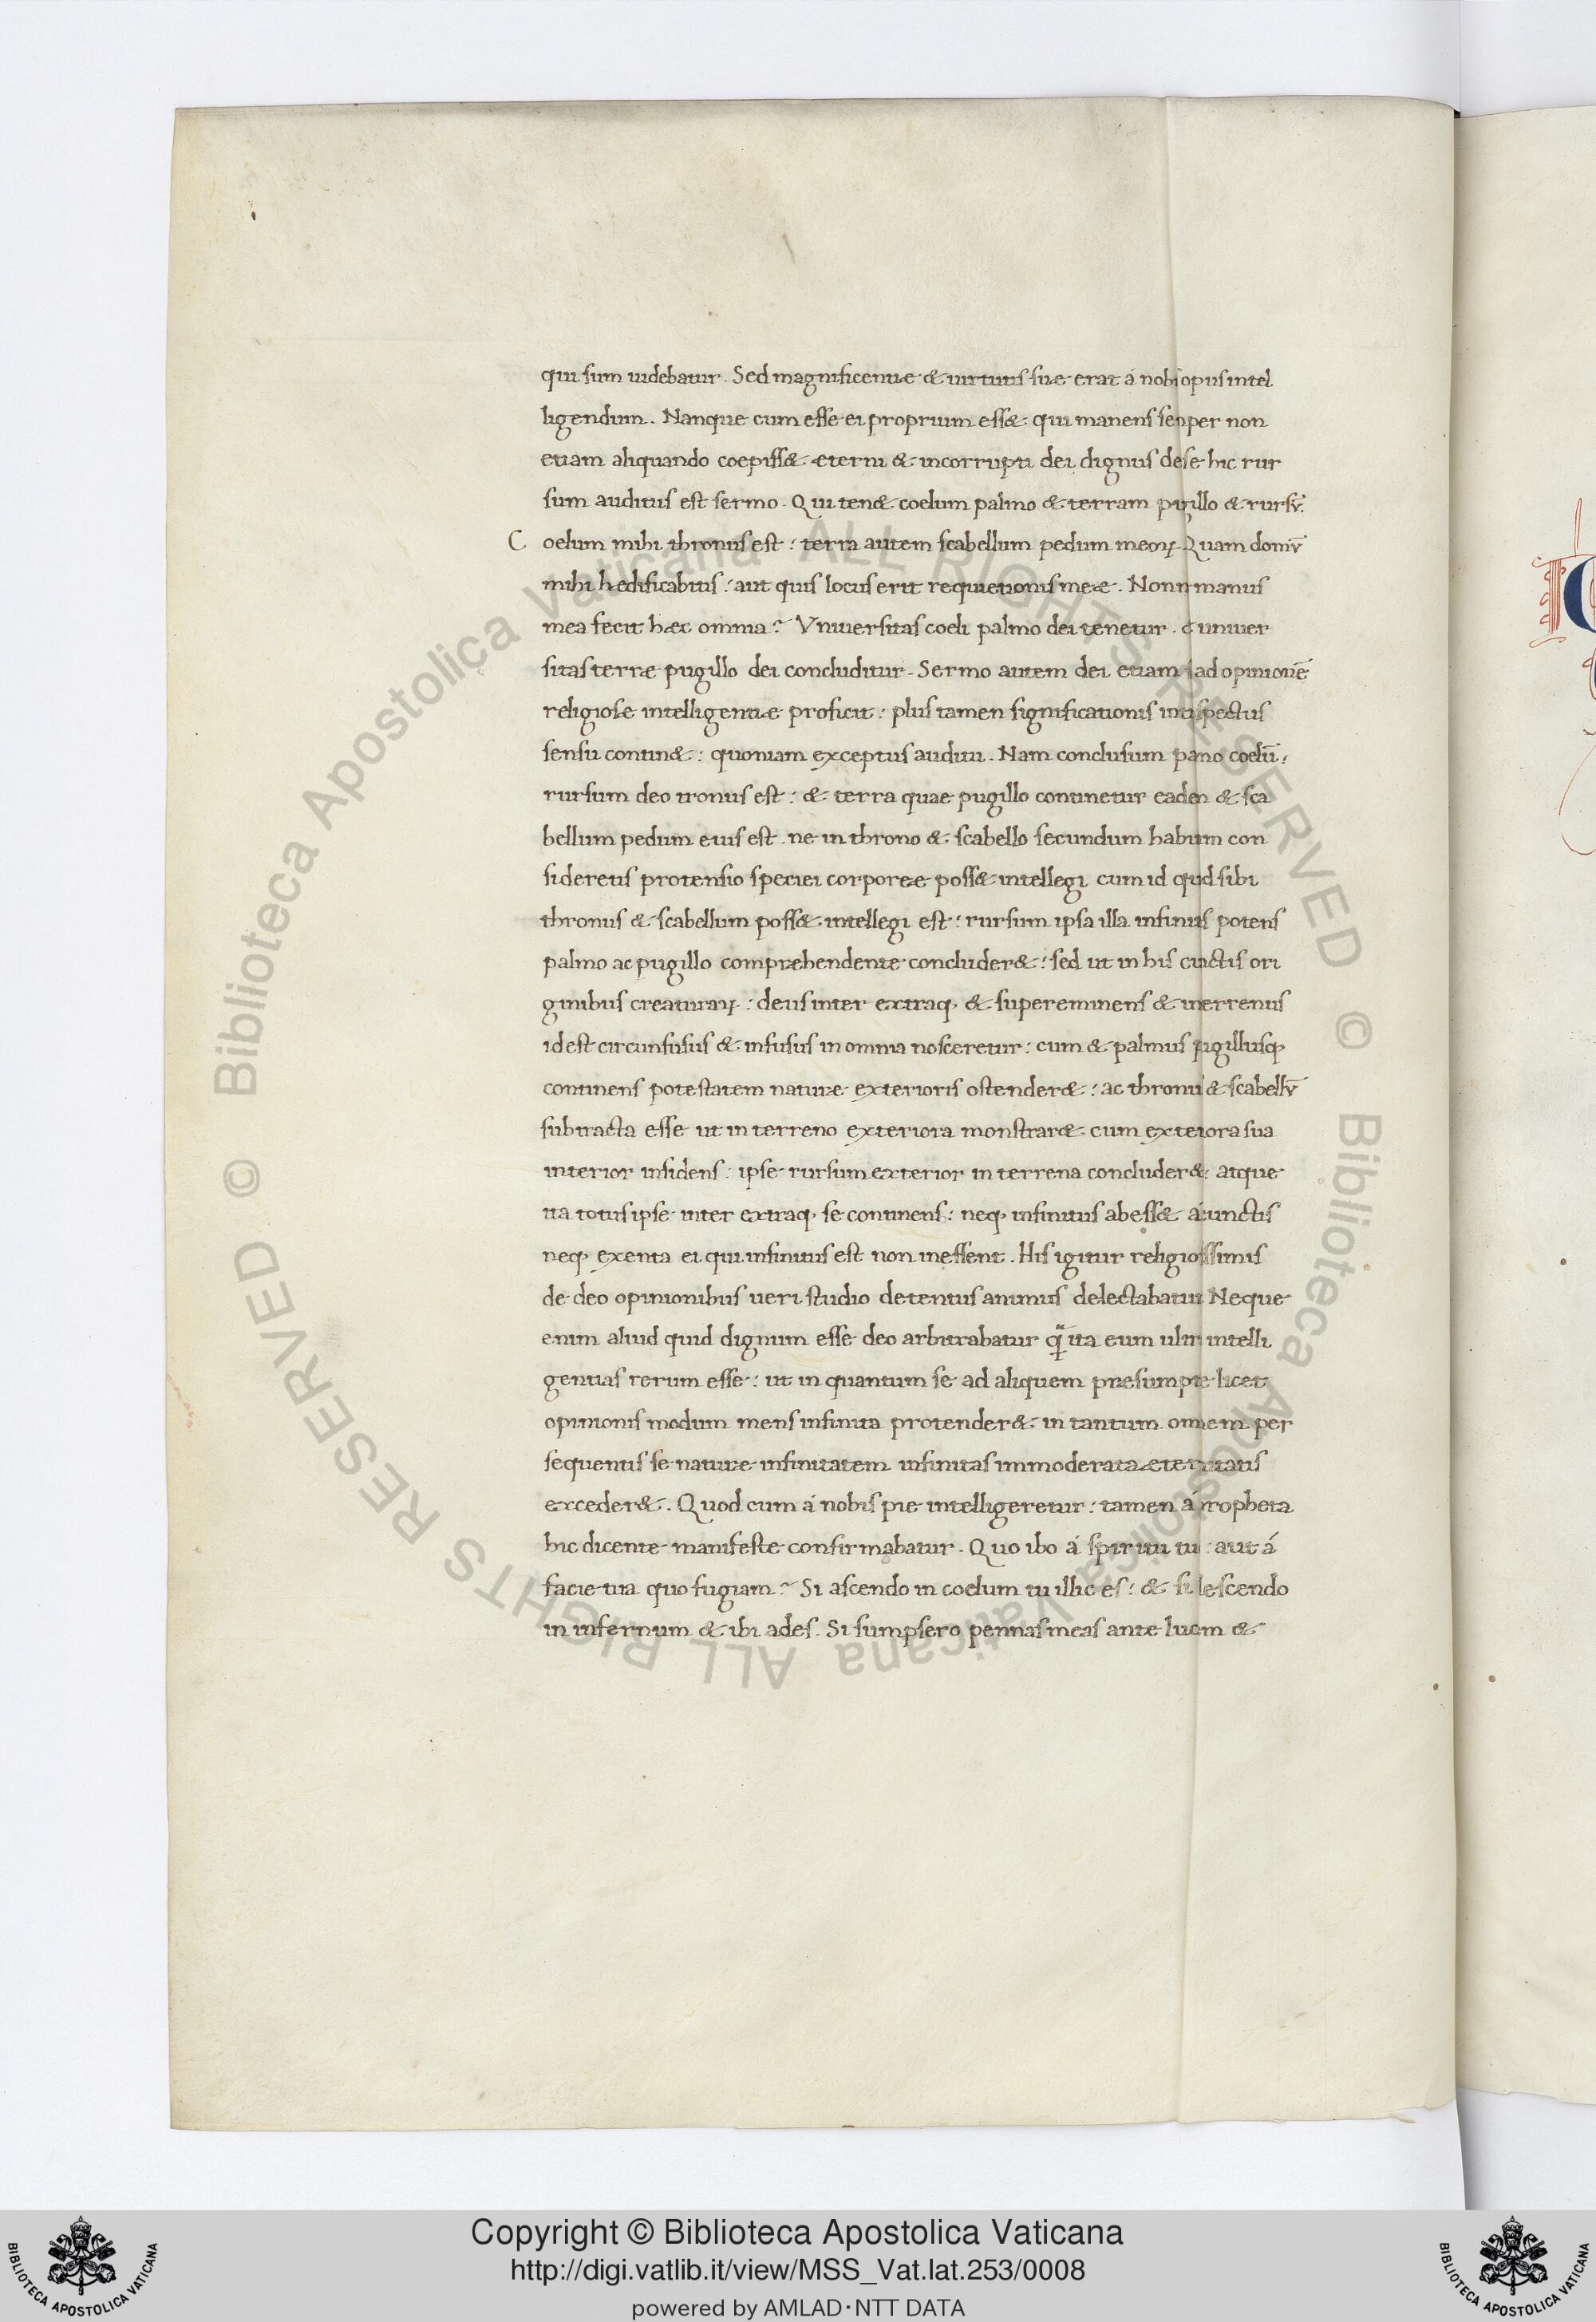 qui sum uidebatur. Sed magnificentiæ & uirtutis suæ erat á nobis opus intel
ligendum. Nanque cum esse ei proprium ess&: qui manens semper non
etiam aliquando coepiss& æterni & incorrupti dei dignus de se hic rur
sum auditus est sermo. Qui ten& coelum palmo & terram pugillo & rursū.
Coelum mihi thronus est: terra autem scabellum pedum meoꝝ. Quam domū
mihi hædificabitis: aut quis locus erit requietionis meæ. Nonne manus
mea fecit hæc omnia? Vniuersitas coeli palmo dei tenetur. & uniuer
sitas terræ pugillo dei concluditur. Sermo autem dei etiam ad opinionē
religiose intelligentiæ proficit: plus tamen significationis introspectus
sensu contin&: quoniam exceptus auditu. Nam conclusum palmo coelū:
rursum deo tronus est: & terra quae pugillo continetur eadem & sca
bellum pedum eius est. ne in throno & scabello secundum habitum con
sidentis protensio speciei corporeæ poss& intellegi cum id quod sibi
thronus & scabellum poss& intellegi est: rursum ipsa illa infinitas potens
palmo ac pugillo compræhendente concluder&: sed ut in his cunctis ori
ginibus creaturaꝝ: deus inter extraqꝫ & supereminens & internus
id est circunfusus & infusus in omnia nosceretur: cum & palmus pugillusqꝫ
continens potestatem naturæ exterioris ostender&: ac thronus & scabellū
subtracta esse ut in terreno exteriora monstrar& cum exteriora sua
interior insidens: ipse rursum exterior in terrena concluder&: atque
ita totus ipse inter extraqꝫ se continens: neqꝫ infinitus abess& á cunctis
neqꝫ exenta ei qui infinitus est non inessent. His igitur religiosissimis
de deo opinionibus ueri studio detentus animus delectabatur. Neque
enim aliud quid dignum esse deo arbitrabatur q̈ ita eum ultra intelli
gentias rerum esse: ut in quantum se ad aliquem præsumptæ licet
opinionis modum mens infinita protender& in tantum omnem per
sequentis se naturæ infinitatem infinitas immoderata æternitatis
exceder&. Quod cum á nobis pie intelligeretur: tamen á propheta
hic dicente manifeste confirmabatur. Quo ibo á spiritu tuo: aut á
facie tua quo fugiam? Si ascendo in coelum tu illic es: & si descendo
in infernum & ibi ades. Si sumpsero pennas meas ante lucem &
© Biblioteca Apostolica Vaticana ALL RIGHTS RESERVED © Biblioteca Apostolica Vaticana ALL RIGHTS RESERVED
Copyright © Biblioteca Apostolica Vaticana
http://digi.vatlib.it/view/MSS_Vat.lat.253/0008
powered by AMLAD·NTT DATA
BIBLIOTECA APOSTOLICA VATICANA
BIBLIOTECA APOSTOLICA VATICANA